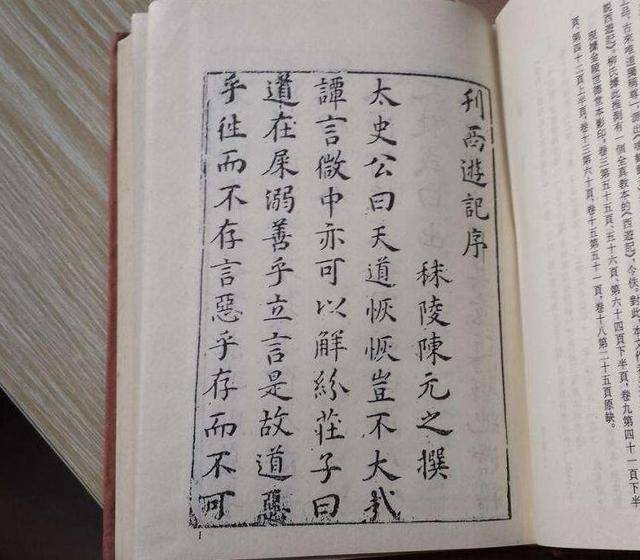 上冊，古來唯道獨稱尊
說西遊記》。柳氏據此推到有一個全真教本的《西遊記》，今佚。對此，本文
現據金陵世德堂本影印。卷三第五十五頁、五十六頁、第六十四頁下半頁、卷九第四十一頁下半
頁、第四十二頁上半頁、卷十三第六十頁、卷十五第五十一頁、卷十八第二十五頁原缺。
刊西遊記序
秣陵陳元之撰
太史公曰天道恢恢豈不大㦲
譚言微中亦可以解紛莊子曰
道在屎溺善乎立言是故道惡
乎徃而不存言惡乎存而不可
1